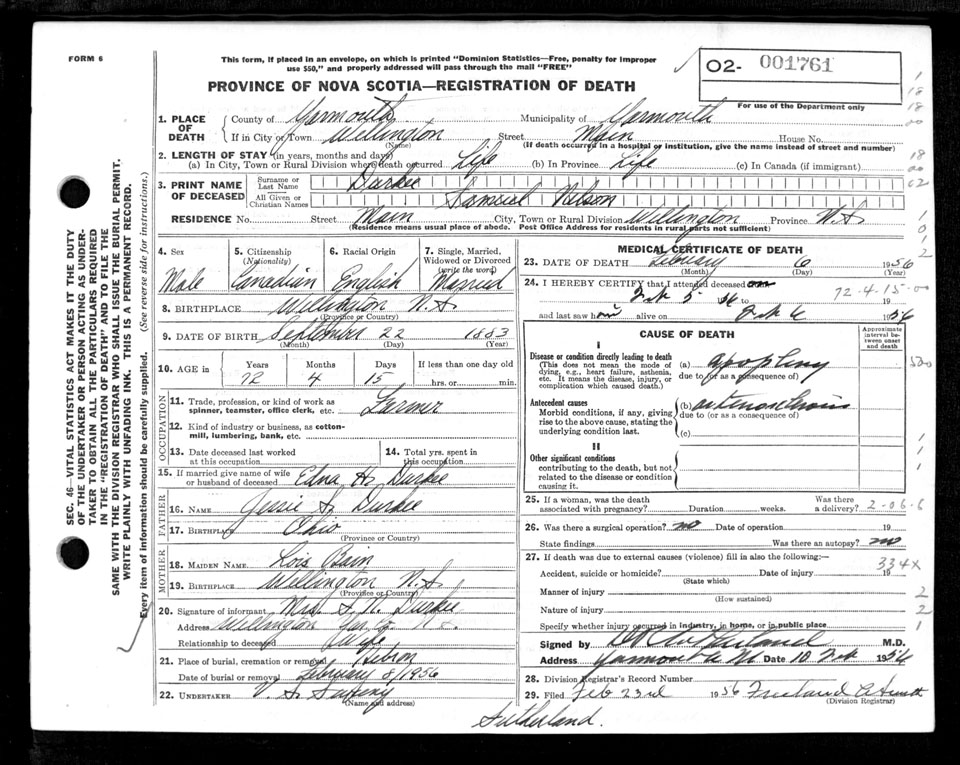 FORM 6
This form, if placed in an envelope, on which is printed "Dominion Statistics—Free, penalty for improper
use $50," and properly addressed will pass through the mail "FREE"
02- 001761
For use of the Department only
PROVINCE OF NOVA SCOTIA—REGISTRATION OF DEATH
1. PLACE OF DEATH
County of Yarmouth Municipality of Yarmouth
If in City or Town Wellington Street Main House No.
(Name) (If death occurred in a hospital or institution, give the name instead of street and number)
2. LENGTH OF STAY (in years, months and days)
(a) In City, Town or Rural Division where death occurred Life (b) In Province Life (c) In Canada (if immigrant)
3. PRINT NAME OF DECEASED
Surname or Last Name Durkee
All Given or Christian Names Samuel Nelson
RESIDENCE No. Street Main City, Town or Rural Division Wellington Province N.S
(Residence means usual place of abode. Post Office Address for residents in rural parts not sufficient)
4. Sex
Male
5. Citizenship (Nationality)
Canadian
6. Racial Origin
English
7. Single, Married, Widowed or Divorced (write the word)
Married
8. BIRTHPLACE Wellington N.S
(Province or Country)
9. DATE OF BIRTH September 22 1883
(Month) (Day) (Year)
10. AGE in
Years Months Days If less than one day old
72 4 15 hrs. or min.
OCCUPATION
11. Trade, profession, or kind of work as
spinner, teamster, office clerk, etc. Farmer
12. Kind of industry or business, as cotton-
mill, lumbering, bank, etc.
13. Date deceased last worked
at this occupation
14. Total yrs. spent in
this occupation
15. If married give name of wife
or husband of deceased Edna H. Durkee
FATHER
16. NAME Jessie S. Durkee
17. BIRTHPLACE Ohio
(Province or Country)
MOTHER
18. MAIDEN NAME Lois Bain
19. BIRTHPLACE Wellington N.S
(Province or Country)
20. Signature of informant Mrs. S. N. Durkee
Address Wellington Yar. Co. N.S.
Relationship to deceased Wife
21. Place of burial, cremation or removal Hebron
Date of burial or removal February 8/1956
22. UNDERTAKER V. S.
(Name and address)
Sutherland.
MEDICAL CERTIFICATE OF DEATH
23. DATE OF DEATH February 6 1956
(Month) (Day) (Year)
24. I HEREBY CERTIFY that I attended deceased
Feb 5 56 to
and last saw him alive on Feb 6 1956
72-4-15-00
CAUSE OF DEATH
Approximate interval between onset and death
I
Disease or condition directly leading to death
(This does not mean the mode of
dying, e.g., heart failure, asthenia,
etc. It means the disease, injury, or
complication which caused death.)
(a) apoplexy
due to (or as a consequence of)
Antecedent causes
Morbid conditions, if any, giving
rise to the above cause, stating the
underlying condition last.
(b) arteriosclerosis
due to (or as a consequence of)
(c)
II
Other significant conditions
contributing to the death, but not
related to the disease or condition
causing it.
25. If a woman, was the death
associated with pregnancy? Duration weeks.
Was there
a delivery?
2-06-6
26. Was there a surgical operation? no Date of operation 19
State findings Was there an autopsy? no
27. If death was due to external causes (violence) fill in also the following:—
334X
Accident, suicide or homicide? Date of injury 19
(State which)
Manner of injury
(How sustained)
Nature of injury
Specify whether injury occurred in industry, in home, or in public place
Signed by M.D.
Address Yarmouth Date 10 Feb 1956
28. Division Registrar's Record Number
29. Filed Feb 23rd 1956 Freeland
(Division Registrar)
SEC. 46—VITAL STATISTICS ACT MAKES IT THE DUTY
OF THE UNDERTAKER OR PERSON ACTING AS UNDER-
TAKER TO OBTAIN ALL THE PARTICULARS REQUIRED
IN THE "REGISTRATION OF DEATH" AND TO FILE THE
SAME WITH THE DIVISION REGISTRAR WHO SHALL ISSUE THE BURIAL PERMIT.
WRITE PLAINLY WITH UNFADING INK. THIS IS A PERMANENT RECORD.
Every item of information should be carefully supplied. (See reverse side for instructions.)